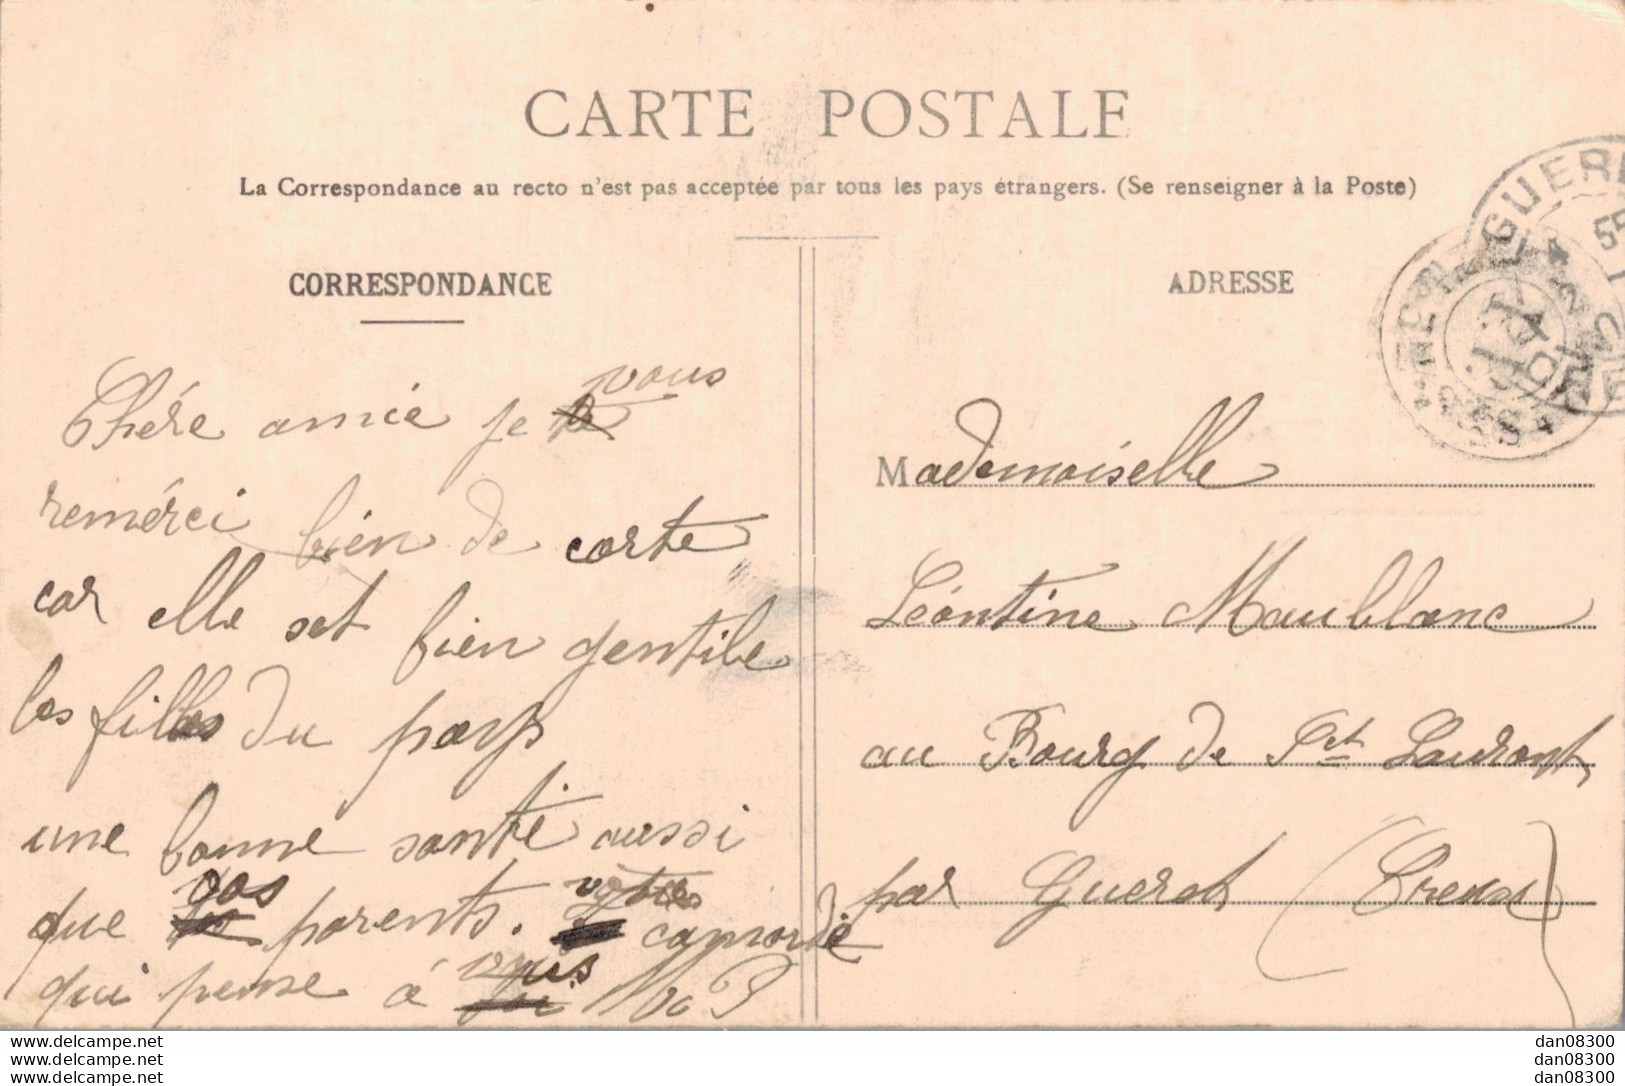 CARTE POSTALE
La Correspondance au recto n'est pas acceptée par tous les pays étrangers. (Se renseigner à la Poste)
CORRESPONDANCE
Chére amie je vous
remérci bien de carte
car elle set bien gentile
les filles du pays
une bonne santé aussi
que vos parents. votres camarde
qui pense à vous
ADRESSE
Mademoiselle
Léontine Maublanc
au Bourg de St Laurant
par Gueret (Creuse)
GUERE
www.delcampe.net
www.delcampe.net
www.delcampe.net
dan08300
dan08300
dan08300